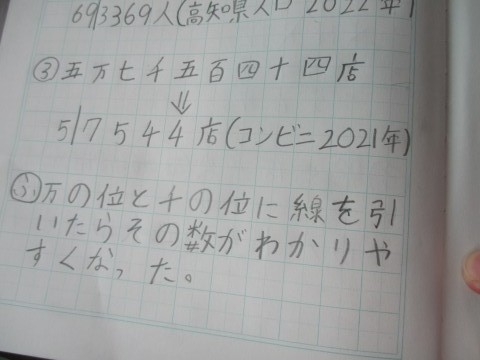 69|3369人(高知県人口 2022年)
③五万七千五百四十四店
⇓
5|7544店(コンビニ2021年)
ふ万の位と千の位に線を引
いたらその数がわかりや
すくなった。